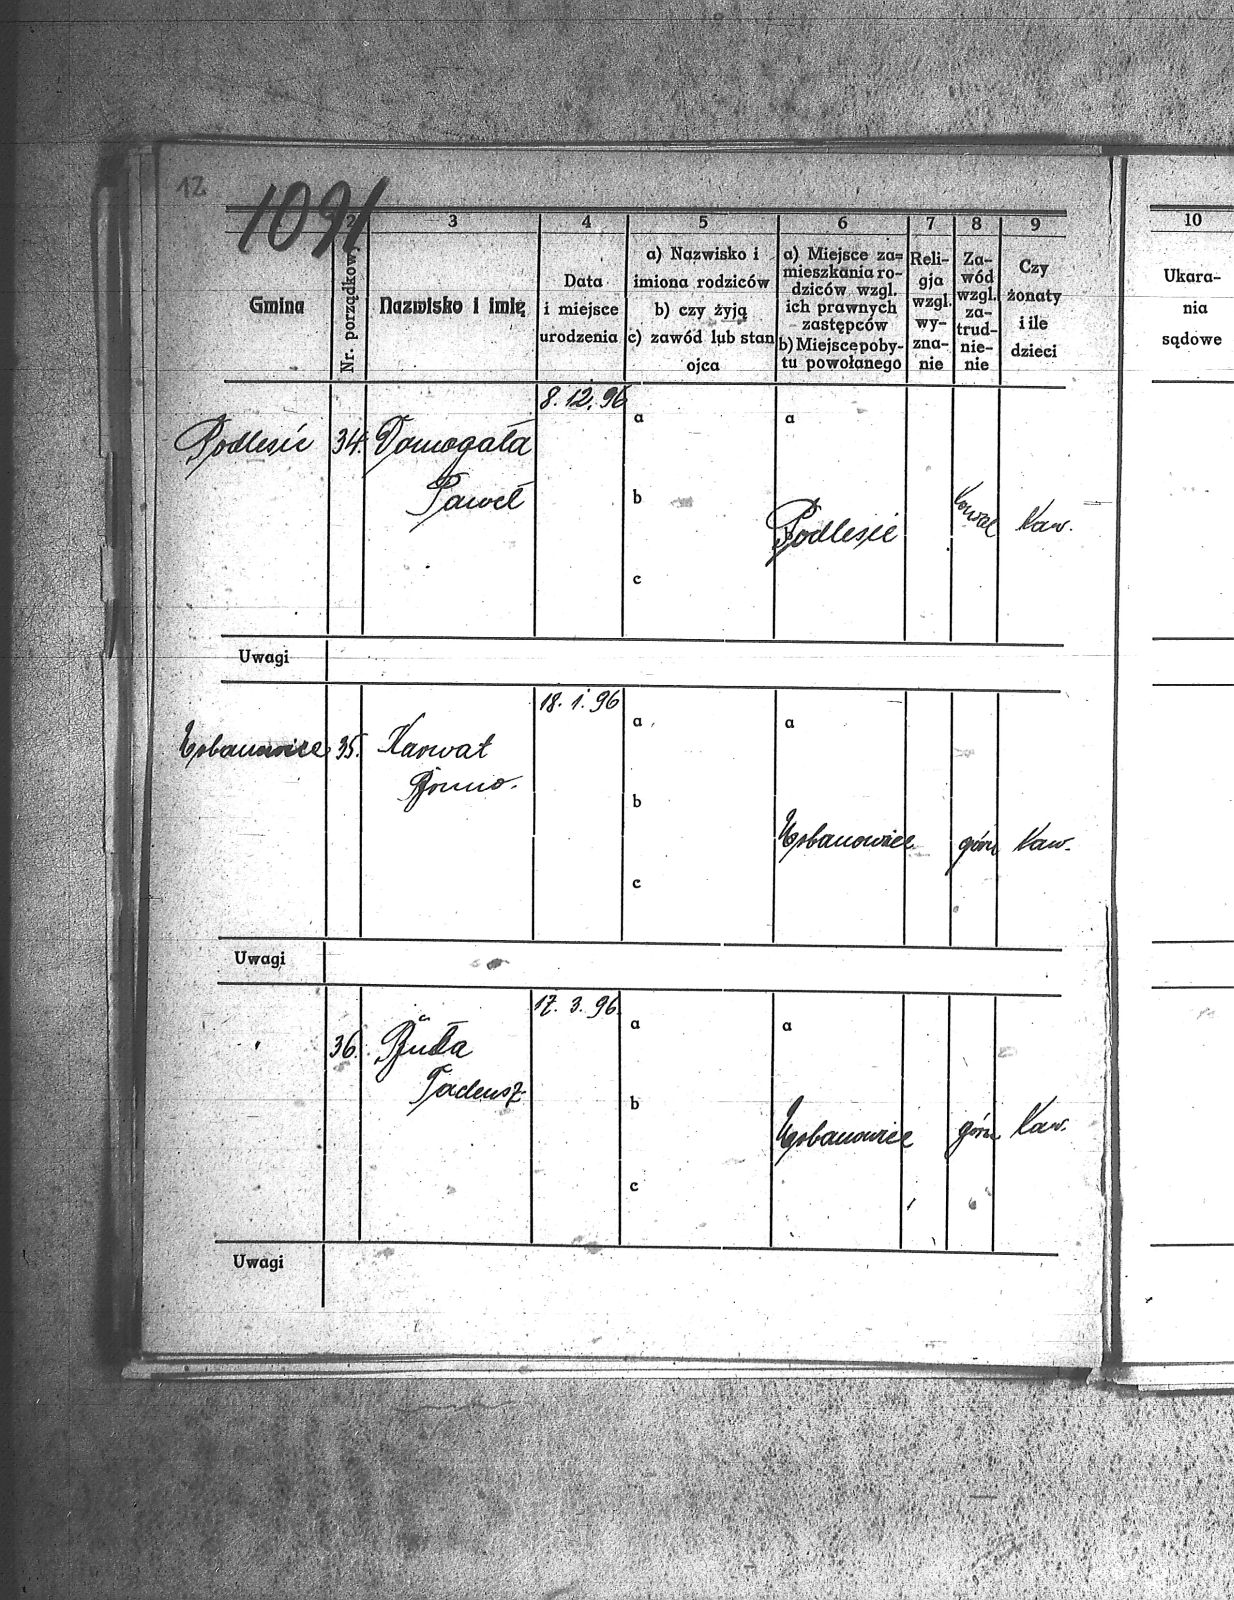 12
1091
2 3 4 5 6 7 8 9 10
Gmina
Nr. porządkowy
Nazwisko i imię
Data
i miejsce
urodzenia
a) Nazwisko i
imiona rodziców
b) czy żyją
c) zawód lub stan
ojca
a) Miejsce za=
mieszkania ro-
dziców wzgl.
ich prawnych
zastępców
b) Miejsce poby-
tu powołanego
Reli-
gja
wzgl.
wy-
zna-
nie
Za-
wód
wzgl.
za-
trud-
nie-
nie
Czy
żonaty
i ile
dzieci
Ukara-
nia
sądowe
8.12.96
a a
Podlesie 34. Domogała
Paweł
b
Podlesie Kaw.
c
Uwagi
18.1.96
a a
Urbanowice 35. Karwat
Bruno.
b
Urbanowice górn Kaw.
c
Uwagi
17.3.96.
a a
36. Buła
Tadeusz
b
Urbanowice górn Kaw.
c
Uwagi